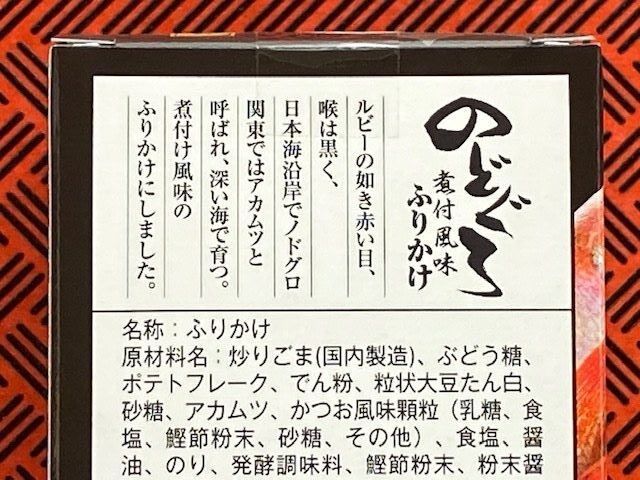 のどぐろ
煮付風味
ふりかけ
ルビーの如き赤い目、
喉は黒く、
日本海沿岸でノドグロ
関東ではアカムツと
呼ばれ、深い海で育つ。
煮付け風味の
ふりかけにしました。
名称：ふりかけ
原材料名：炒りごま(国内製造)、ぶどう糖、
ポテトフレーク、でん粉、粒状大豆たん白、
砂糖、アカムツ、かつお風味顆粒（乳糖、食
塩、鰹節粉末、砂糖、その他）、食塩、醤
油、のり、発酵調味料、鰹節粉末、粉末醤